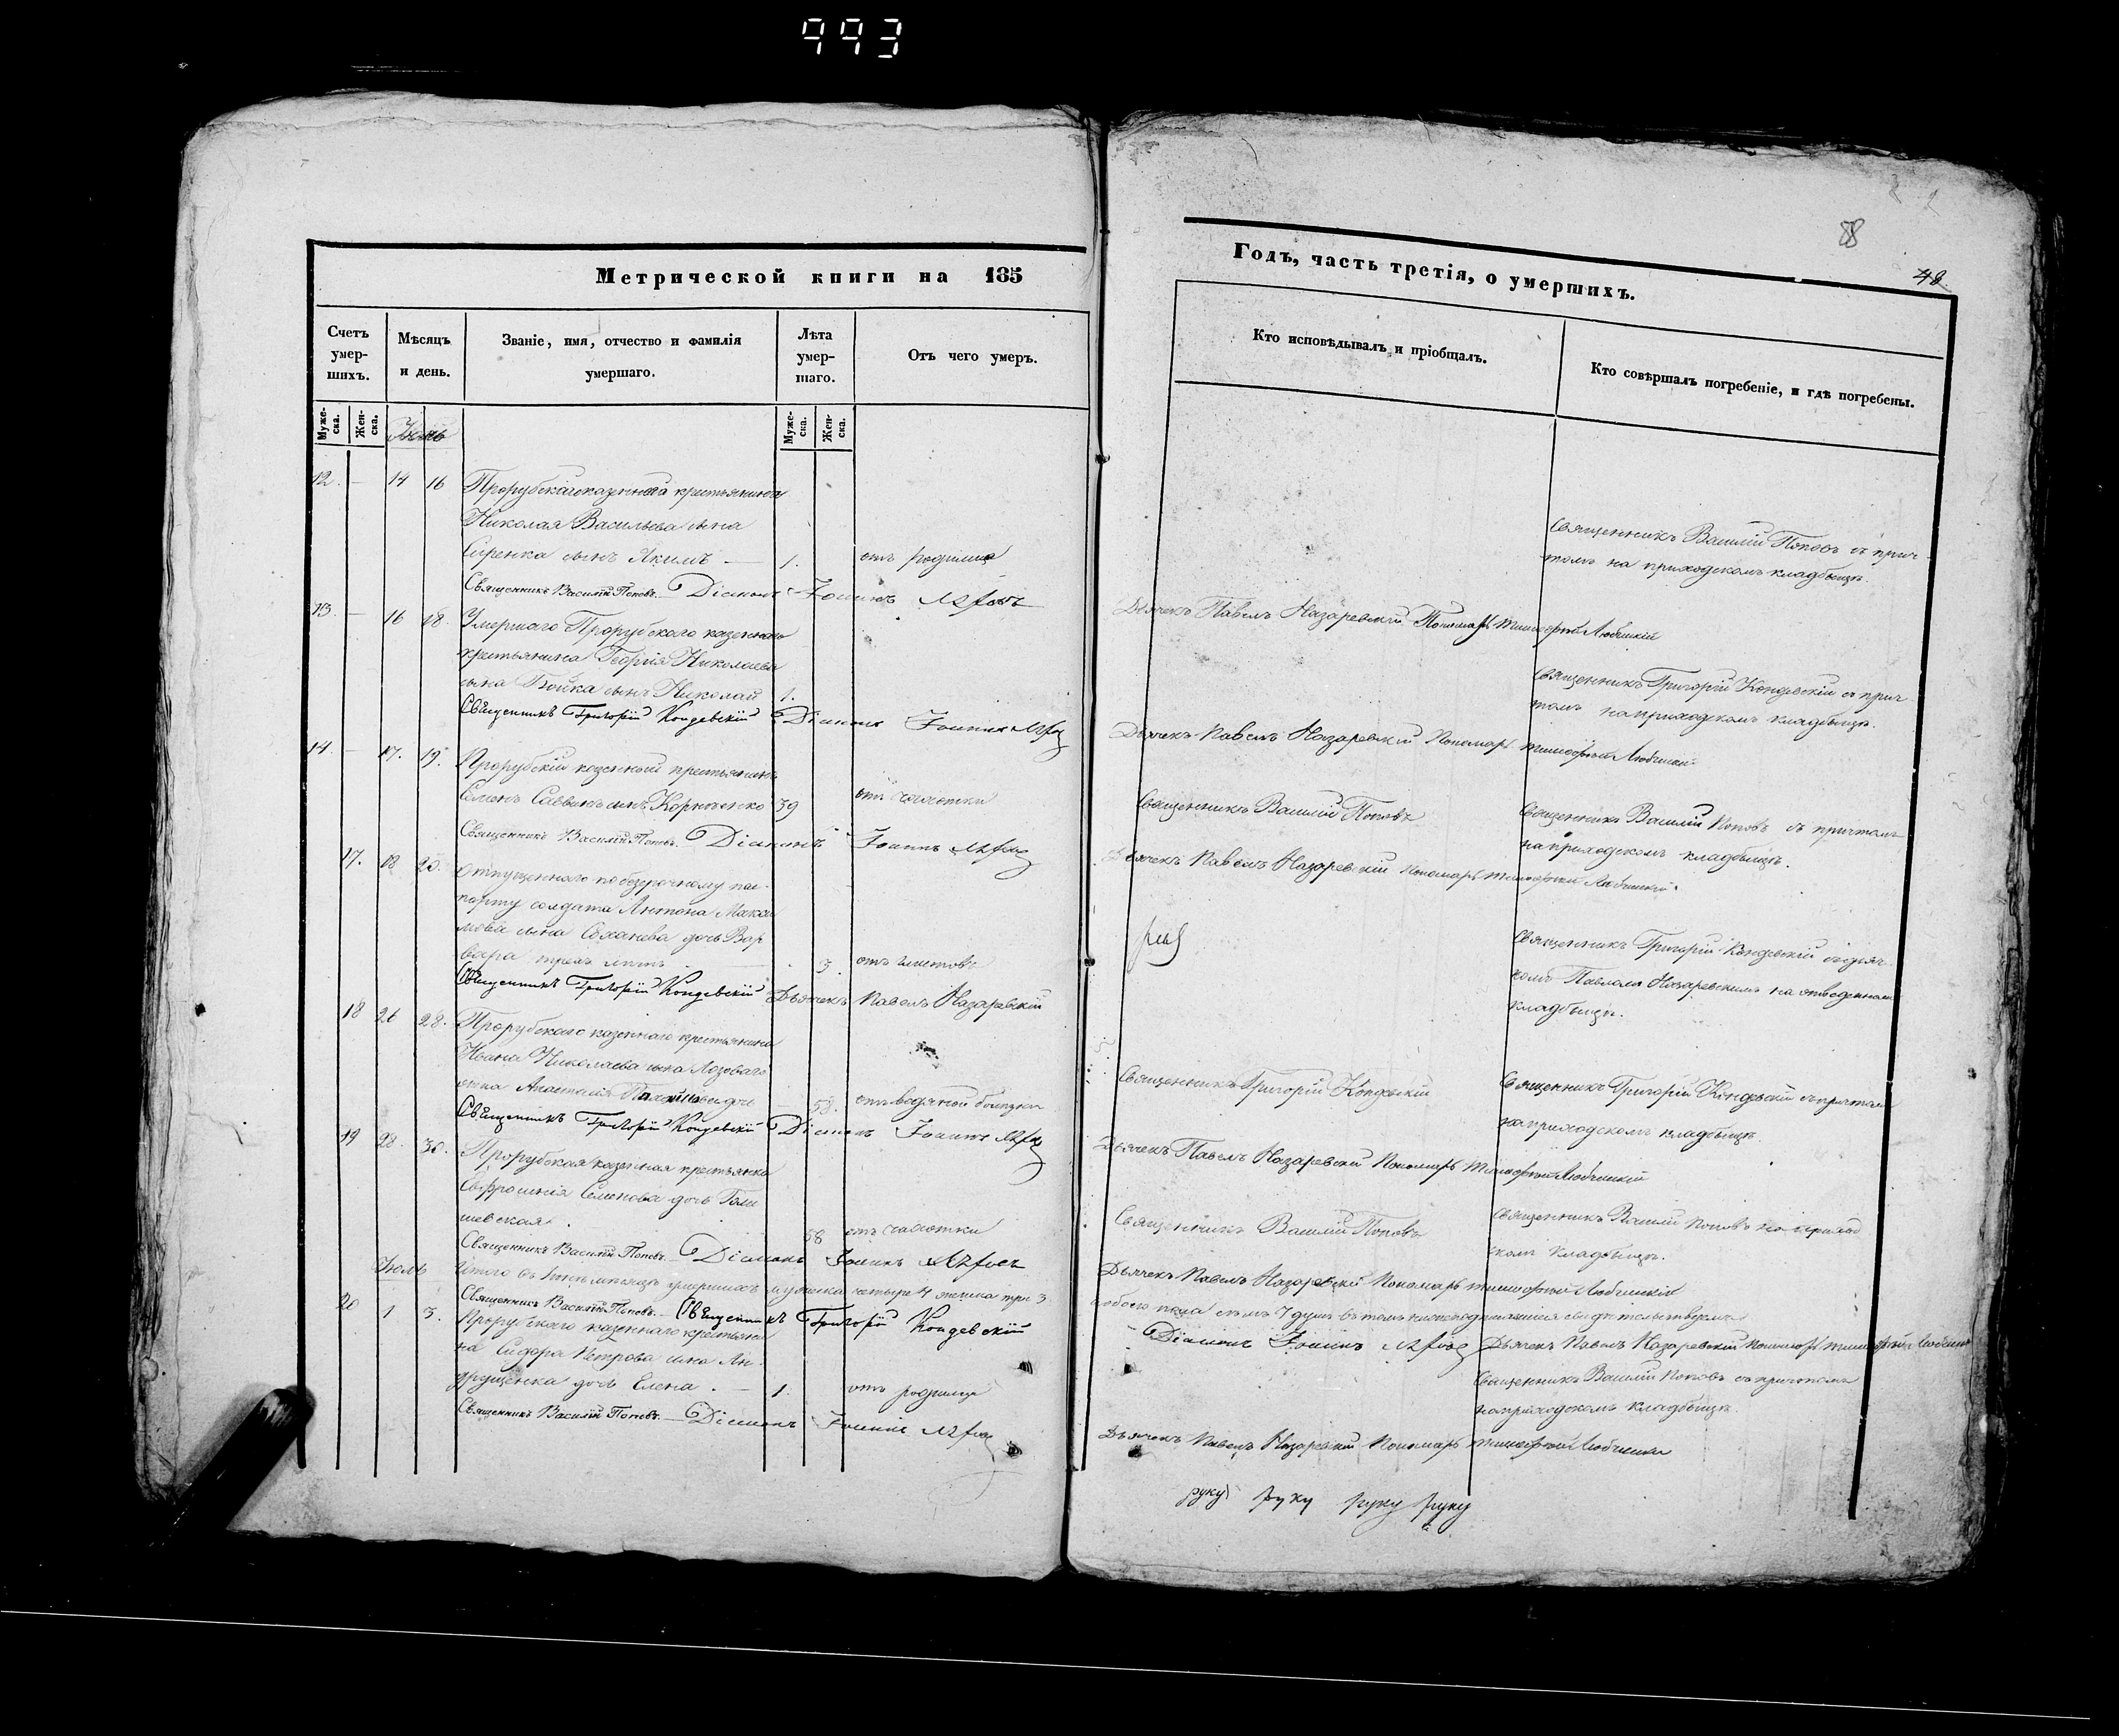 993
Метрической книги на 185
Счетъ умер-шихъ.
Мѣсяцъ и день.
Званіе, имя, отчество и фамилія умершаго.
Лѣта умер-шаго.
Отъ чего умеръ.
Муже-ска.
Жен-ска.
Муже-ска.
Жен-ска.
Іюнь
12. 14 16 Прорубскаго казеннаго крестьянина
Николая Васильева сына
сынъ Якимъ 1. отъ родимца
Священникъ Василій Поповъ. Діаконъ Іоаннъ
13. 16 18. Умершаго Прорубскаго казеннаго
крестьянина Георгія Николаева
сына Бойка сынъ Николай 1.
Священникъ Григорій Кондевскій Діаконъ Іоаннъ
14. 17. 19. Прорубскій казенный крестьянинъ
Семенъ Саввинъ сынъ Корніенко 39 отъ чахотки
Священникъ Василій Поповъ. Діаконъ Іоаннъ
17. 18 20. отпущеннаго по безсрочному пас-
порту солдата Антона Макси
мова сына дочь Вар
вара трехъ лѣтъ 3.
Священникъ Григорій Кондевскій Дьячекъ Павелъ Назаревскій
18 26 28. Прорубскаго казеннаго крестьянина
Ивана Николаева сына Лозоваго
жена Анастасія 58. отъ водяной болѣзни
Священникъ Григорій Кондевскій Діаконъ Іоаннъ
19 28. 30. Прорубская казенная крестьянка
Евфросинія Семенова дочь
58 отъ чахотки
Священникъ Василій Поповъ. Діаконъ Іоаннъ
Іюль
Итого въ Іюнѣ мѣсяцѣ умершихъ мужеска четыре 4 женска три 3
Священникъ Василій Поповъ. Священникъ Григорій Кондевскій
20 1 3. Прорубскаго казеннаго крестьяни
на Сидора Петрова сына Ан-
друщенка дочь Елена. 1. отъ родимца
Священникъ Василій Поповъ. Діаконъ Іоаннъ
88
48
Годъ, часть третія, о умершихъ.
Кто исповѣдывалъ и пріобщалъ.
Кто совѣршалъ погребеніе, и гдѣ погребены.
Священникъ Василій Поповъ съ прич-
томъ на приходскомъ кладбищѣ.
Дьячекъ Павелъ Назаревскій Пономарь Тимофей Любицкій
Священникъ Григорій Кондевскій съ прич
томъ на приходскомъ кладбищѣ.
Дьячекъ Павелъ Назаревскій Пономарь Тимофей Любицкій
Священникъ Василій Поповъ
Священникъ Василій Поповъ съ причтомъ
на приходскомъ кладбищѣ.
Дьячекъ Павелъ Назаревскій Пономарь Тимофей Любицкій
Священникъ Григорій Кондевскій съ дьяч
комъ Павломъ Назаревскимъ на отведенномъ
кладбищѣ.
Священникъ Григорій Кондевскій
Священникъ Григорій Кондевскій съ причтомъ
на приходскомъ кладбищѣ.
Дьячекъ Павелъ Назаревскій Пономарь Тимофей Любицкій
Священникъ Василій Поповъ
Священникъ Василій Поповъ на приход
скомъ кладбищѣ.
Дьячекъ Павелъ Назаревскій Пономарь Тимофей Любицкій
обоего пола семь 7 душъ въ томъ свидѣтельствуемъ
Діаконъ Іоаннъ Дьячекъ Павелъ Назаревскій Пономарь Тимофей Любицкій
Священникъ Василій Поповъ съ причтомъ
на приходскомъ кладбищѣ.
Дьячекъ Павелъ Назаревскій Пономарь Тимофей Любицкій
руку руку руку руку